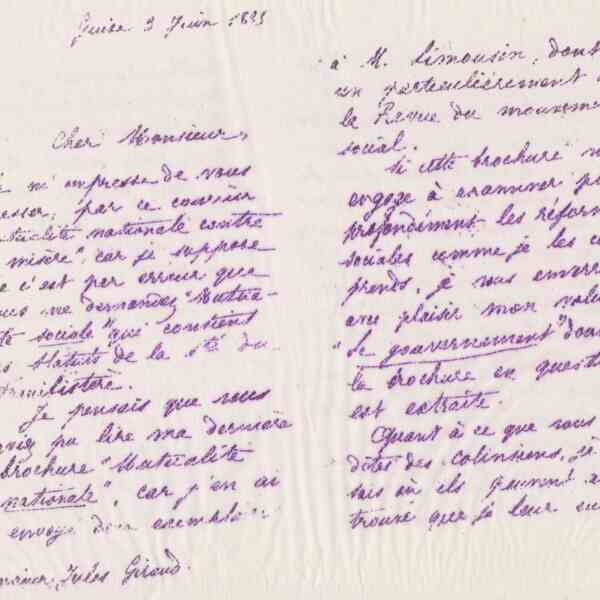 Guise 3 Juin 1885
Cher Monsieur,
m'empresse de vous
par ce courrier
nationale contre
misère", car je suppose
c'est par erreur que
me demandez "Mutua-
sociale" qui contient
statuts de la sté du
Familistère.
Je pensais que vous
pu lire ma dernière
brochure "Mutualité
nationale", car j'en ai
envoyé deux exemplaires
Jules Giraud.
à M. Limousin, dont
un particulièrement
la Revue du mouvement
social.
Si cette brochure
engage à examiner
profondément les réformes
sociales comme je les
prends, je vous enverrai
avec plaisir mon
"Le gouvernement" dont
la brochure en question
est extraite.
Quant à ce que vous
dites des colinsiens, je
sais où ils
trouvé que je leur